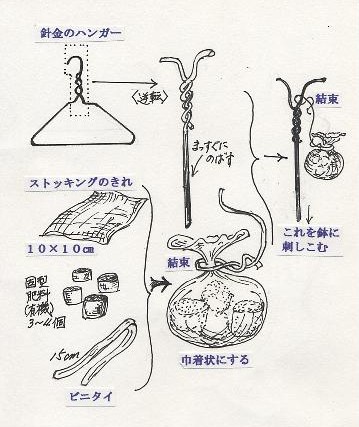 針金のハンガー
〈逆転〉
まっすぐに
のばす
結束
これを鉢に
刺しこむ
ストッキングのきれ
10×10㎝
固型
肥料
(有機)
3～4個
15cm
ビニタイ
結束
巾着状にする